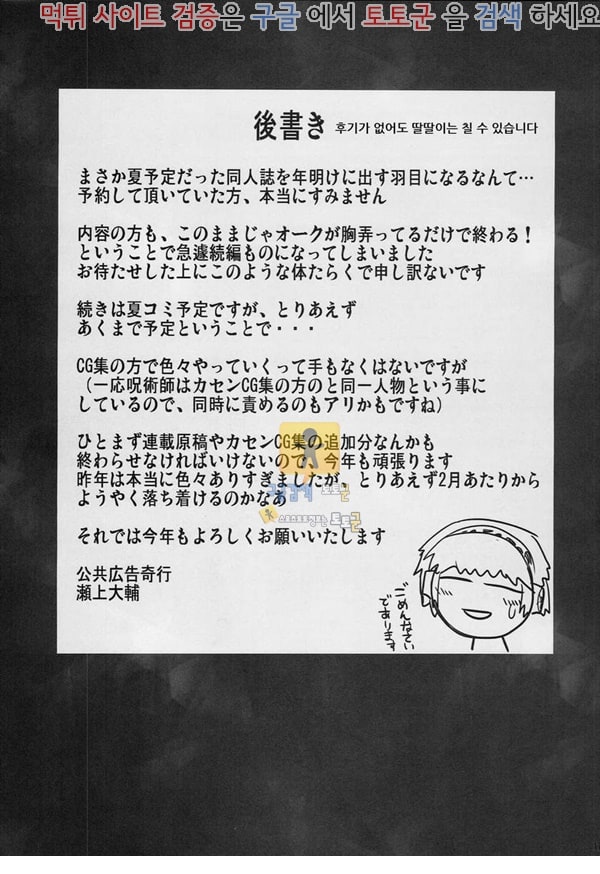 먹튀 사이트 검증은 구글 에서 토토군 을 검색 하세요
後書き 후기가 없어도 딸딸이는 칠 수 있습니다
まさか夏予定だった同人誌を年明けに出す羽目になるなんて…
予約して頂いていた方、本当にすみません
内容の方も、このままじゃオークが胸弄ってるだけで終わる！
ということで急遽続編ものになってしまいました
お待たせした上にこのような体たらくで申し訳ないです
続きは夏コミ予定ですが、とりあえず
あくまで予定ということで・・・
CG集の方で色々やっていくって手もなくはないですが
（一応呪術師はカセンCG集の方のと同一人物という事に
しているので、同時に責めるのもアリかもですね）
ひとまず連載原稿やカセンCG集の追加分なんかも
終わらせなければいけないので、今年も頑張ります
昨年は本当に色々ありすぎましたが、とりあえず2月あたりから
ようやく落ち着けるのかなあ
토토군
토토군
それでは今年もよろしくお願いいたします
公共広告奇行
瀬上大輔
ごめんなさい
であります